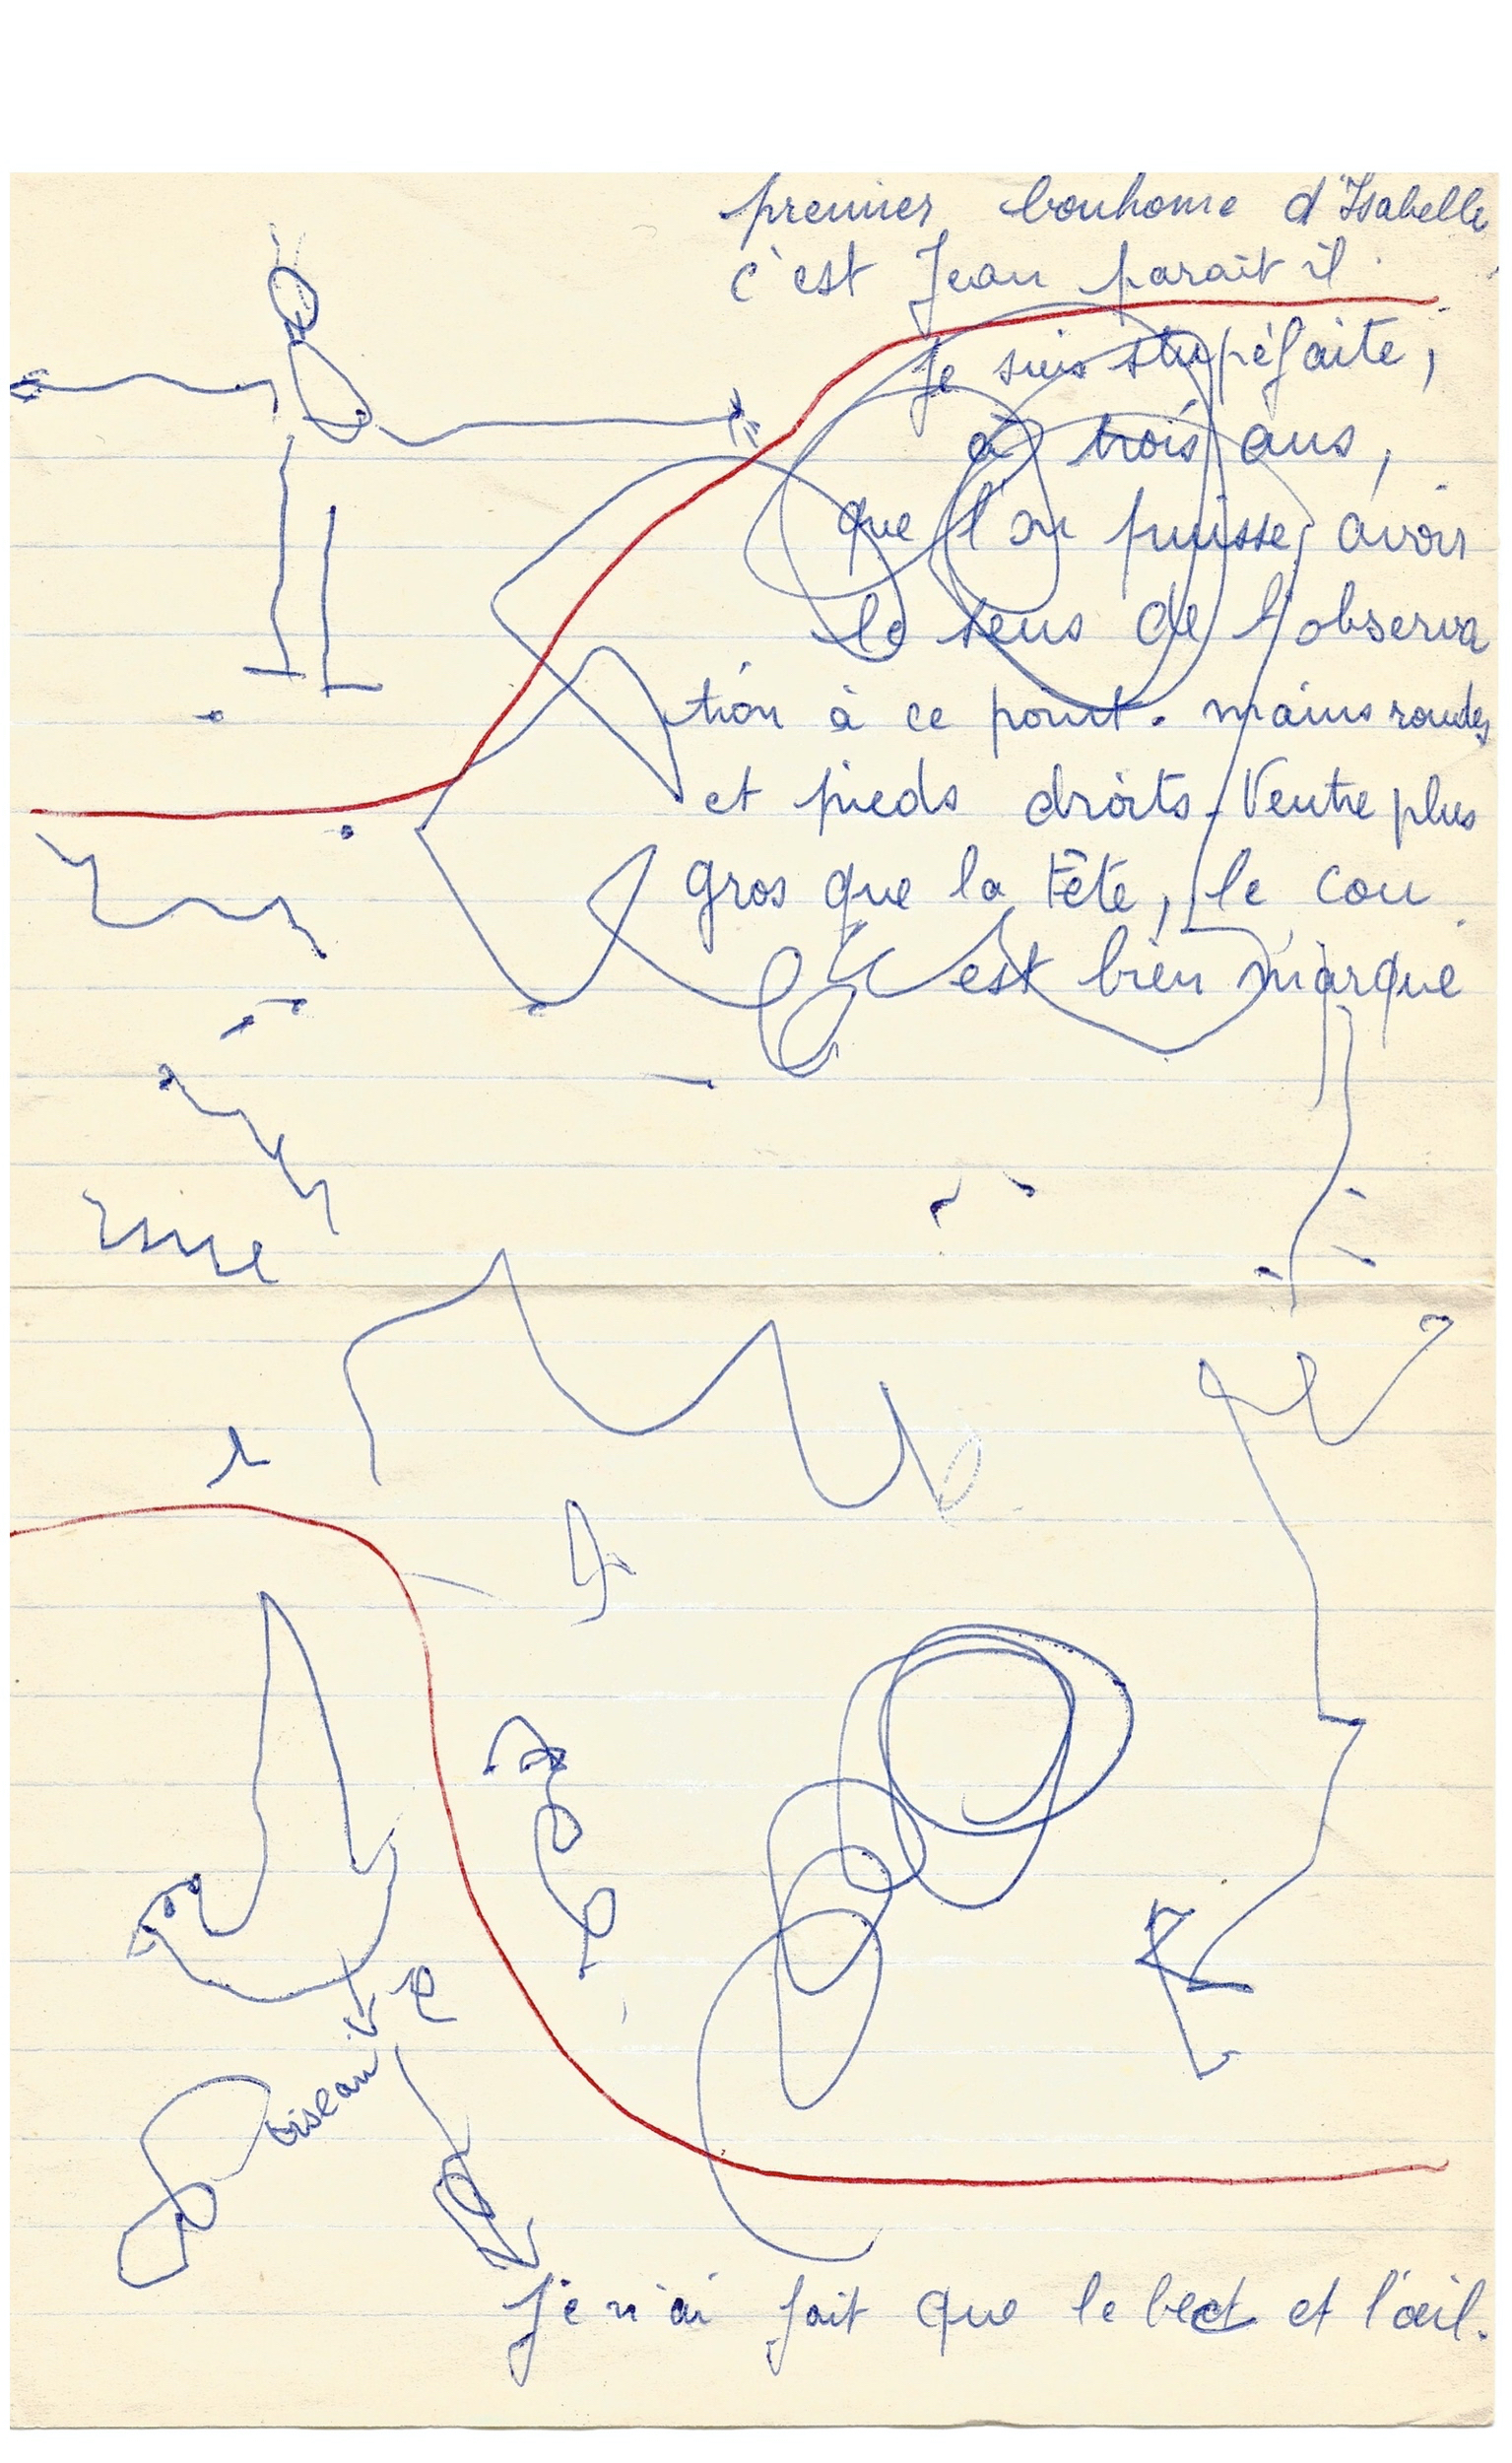 premier bonhome d'Isabelle
c'est Jean parait il.
Je suis stupéfaite,
à trois ans,
que l'on puisse avoir
le sens de l'observa
tion à ce point. mains rondes
et pieds droits. Ventre plus
gros que la Tête, le cou
est bien marque
oiseau
Je n'ai fait que le bec et l'œil.